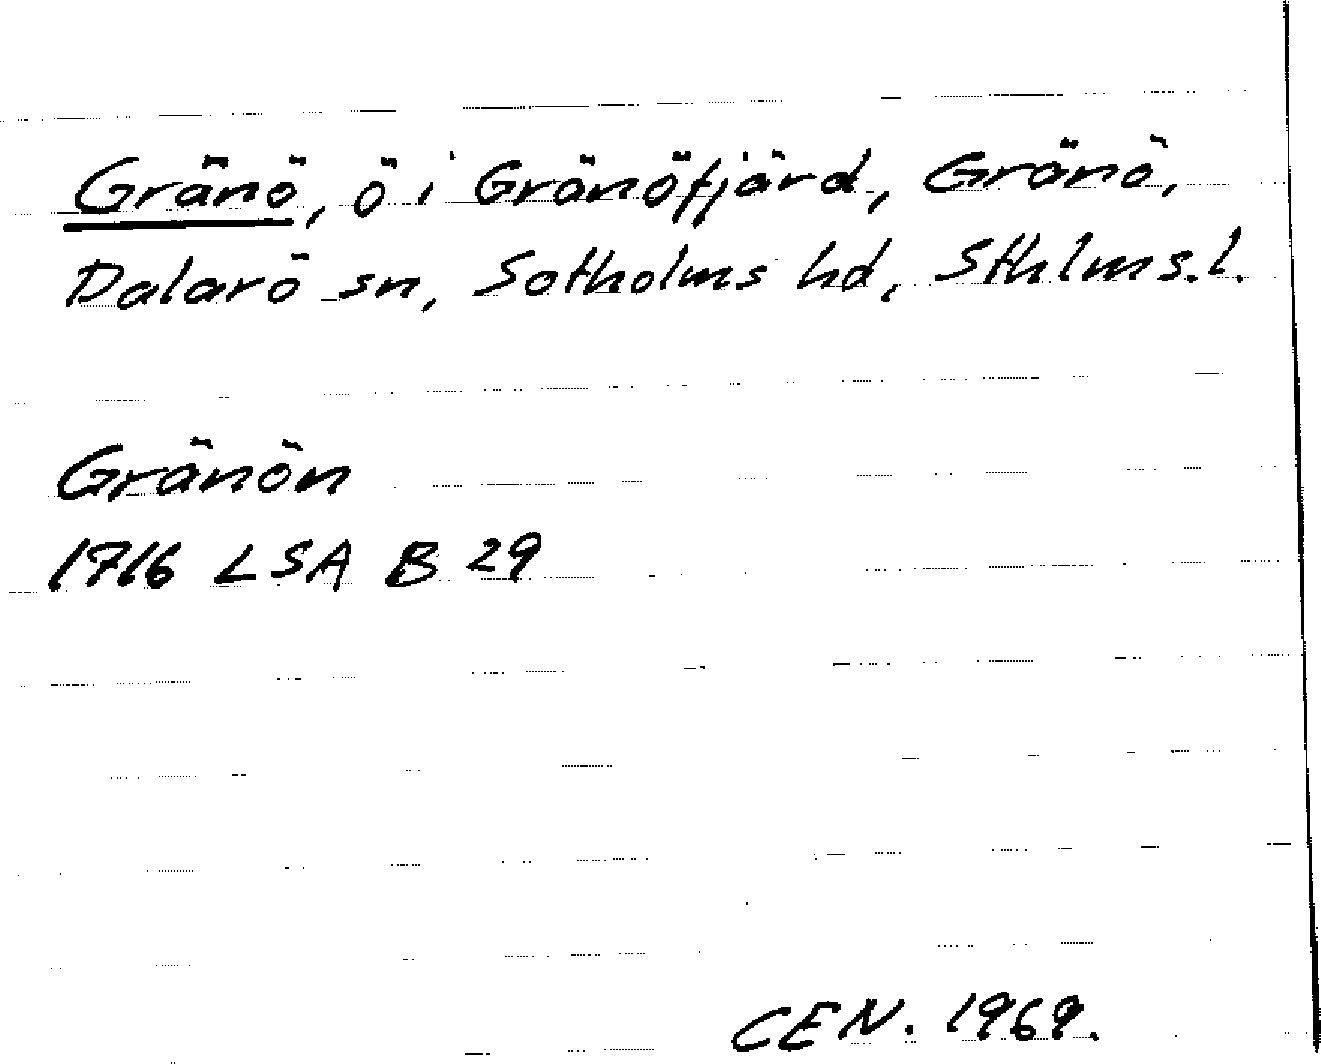 Gränö, ö i Gränöfjärd, Gränö,
Dalarö sn, Sotholms hd, Sthlms.l.
Gränön
1716 LSA B 29
CEN. 1969.